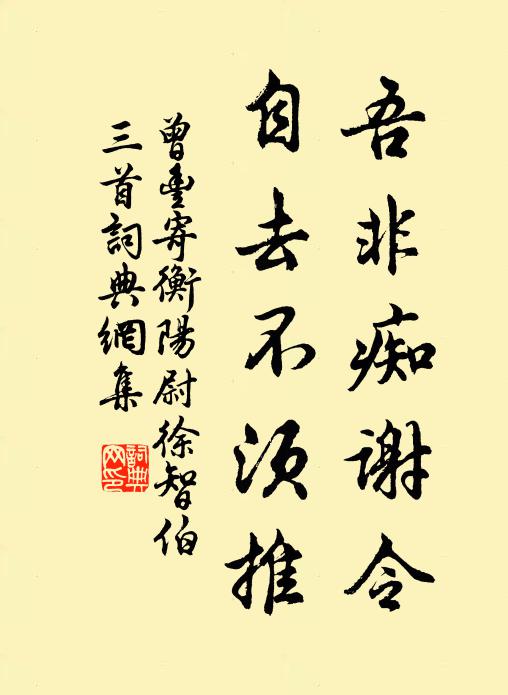 吾非痴谢令
自去不须推
曾豐寄衡陽尉徐智伯
三首詞典網集
詞典
网印